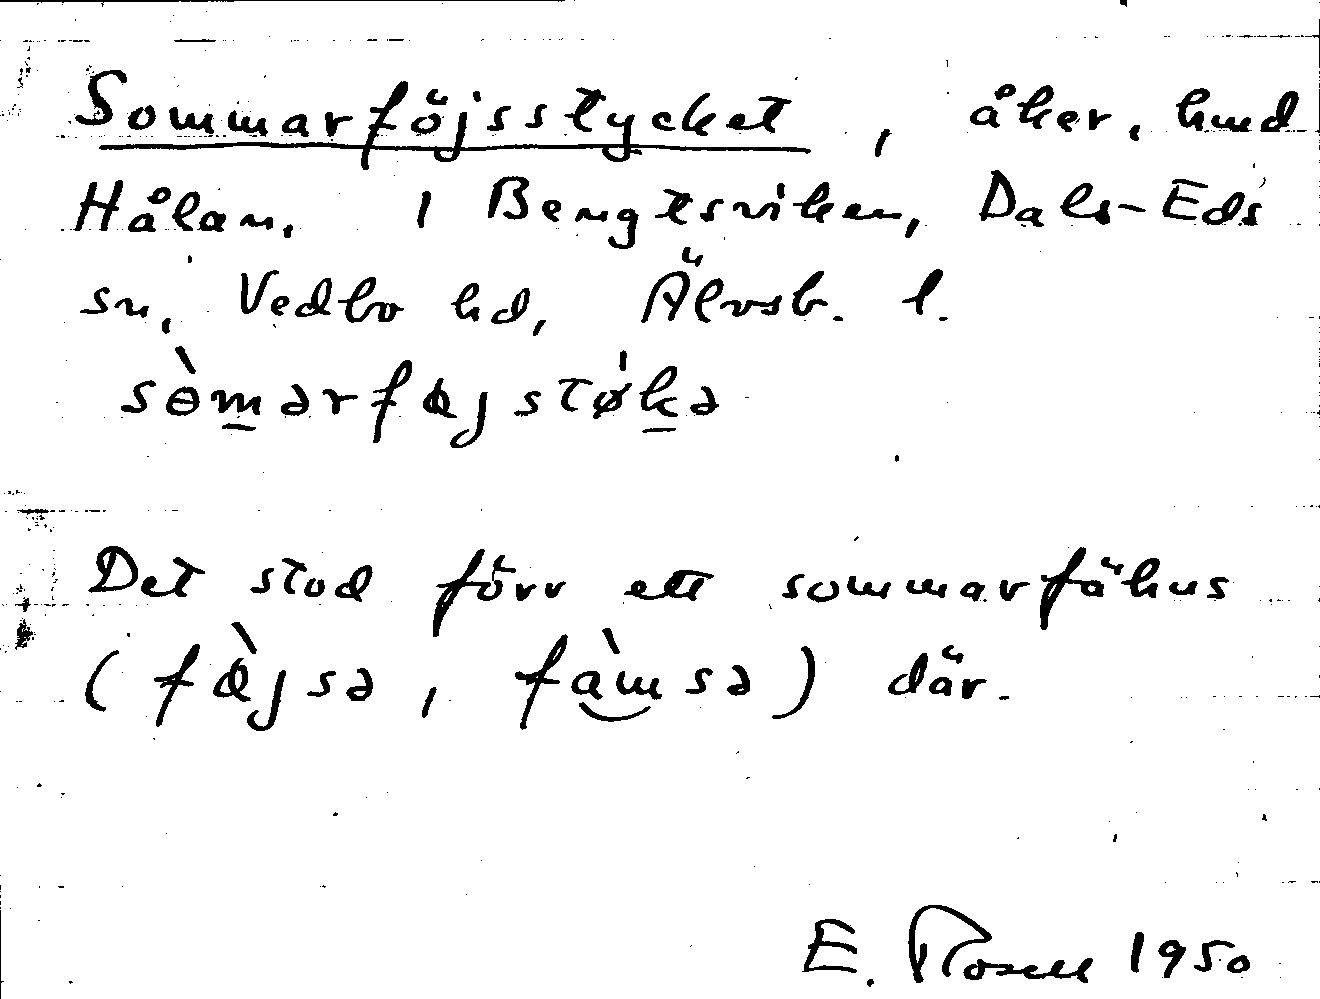 Sommarföjsstycket, åker, hmd
Hålan, 1 Bengtsviken, Dals-Eds
sn, Vedbo hd, Älvsb. l.
sɵ̀marfɵjstø̍ka
Det stod förr ett sommarfähus
(fɵ̀jsə, fàmsə) där.
E. Rosell 1950